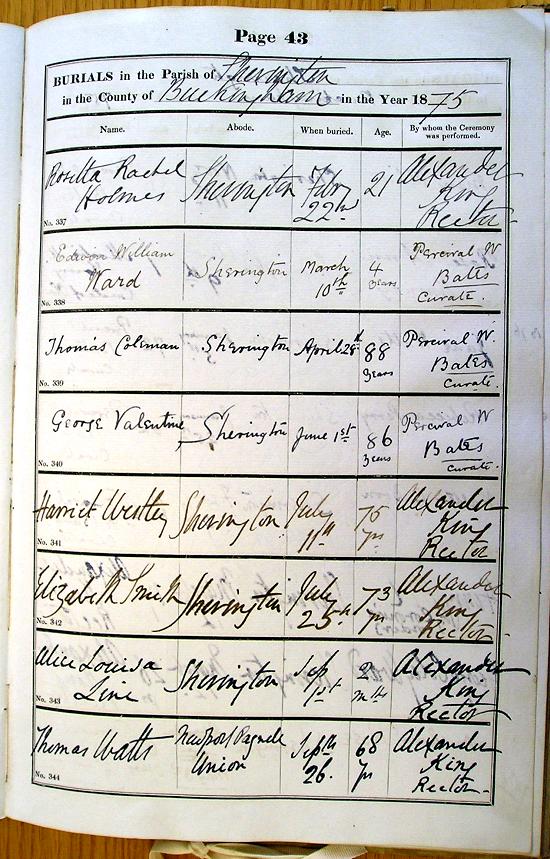 Page 43
BURIALS in the Parish of Sherington
in the County of Buckingham in the Year 1875
Name. Abode. When buried. Age. By whom the Ceremony was performed.
Rosetta Rachel Holmes Sherington Feby 22nd 21 Alexander King Rector
No. 337
Edwin William Ward Sherington March 10th 4 years Percival W Bates Curate.
No. 338
Thomas Coleman Sherington April 28th 88 years Percival W. Bates Curate.
No. 339
George Valentine Sherington June 1st 86 years Percival W Bates Curate.
No. 340
Harriet Westley Sherington July 11th 75 yrs Alexander King Rector
No. 341
Elizabeth Smith Sherington July 25th 73 yrs Alexander King Rector
No. 342
Alice Louisa Line Sherington Sep 1st 2 mths Alexander King Rector
No. 343
Thomas Watts Newport Pagnell Union Septh 26. 68 yrs Alexander King Rector
No. 344